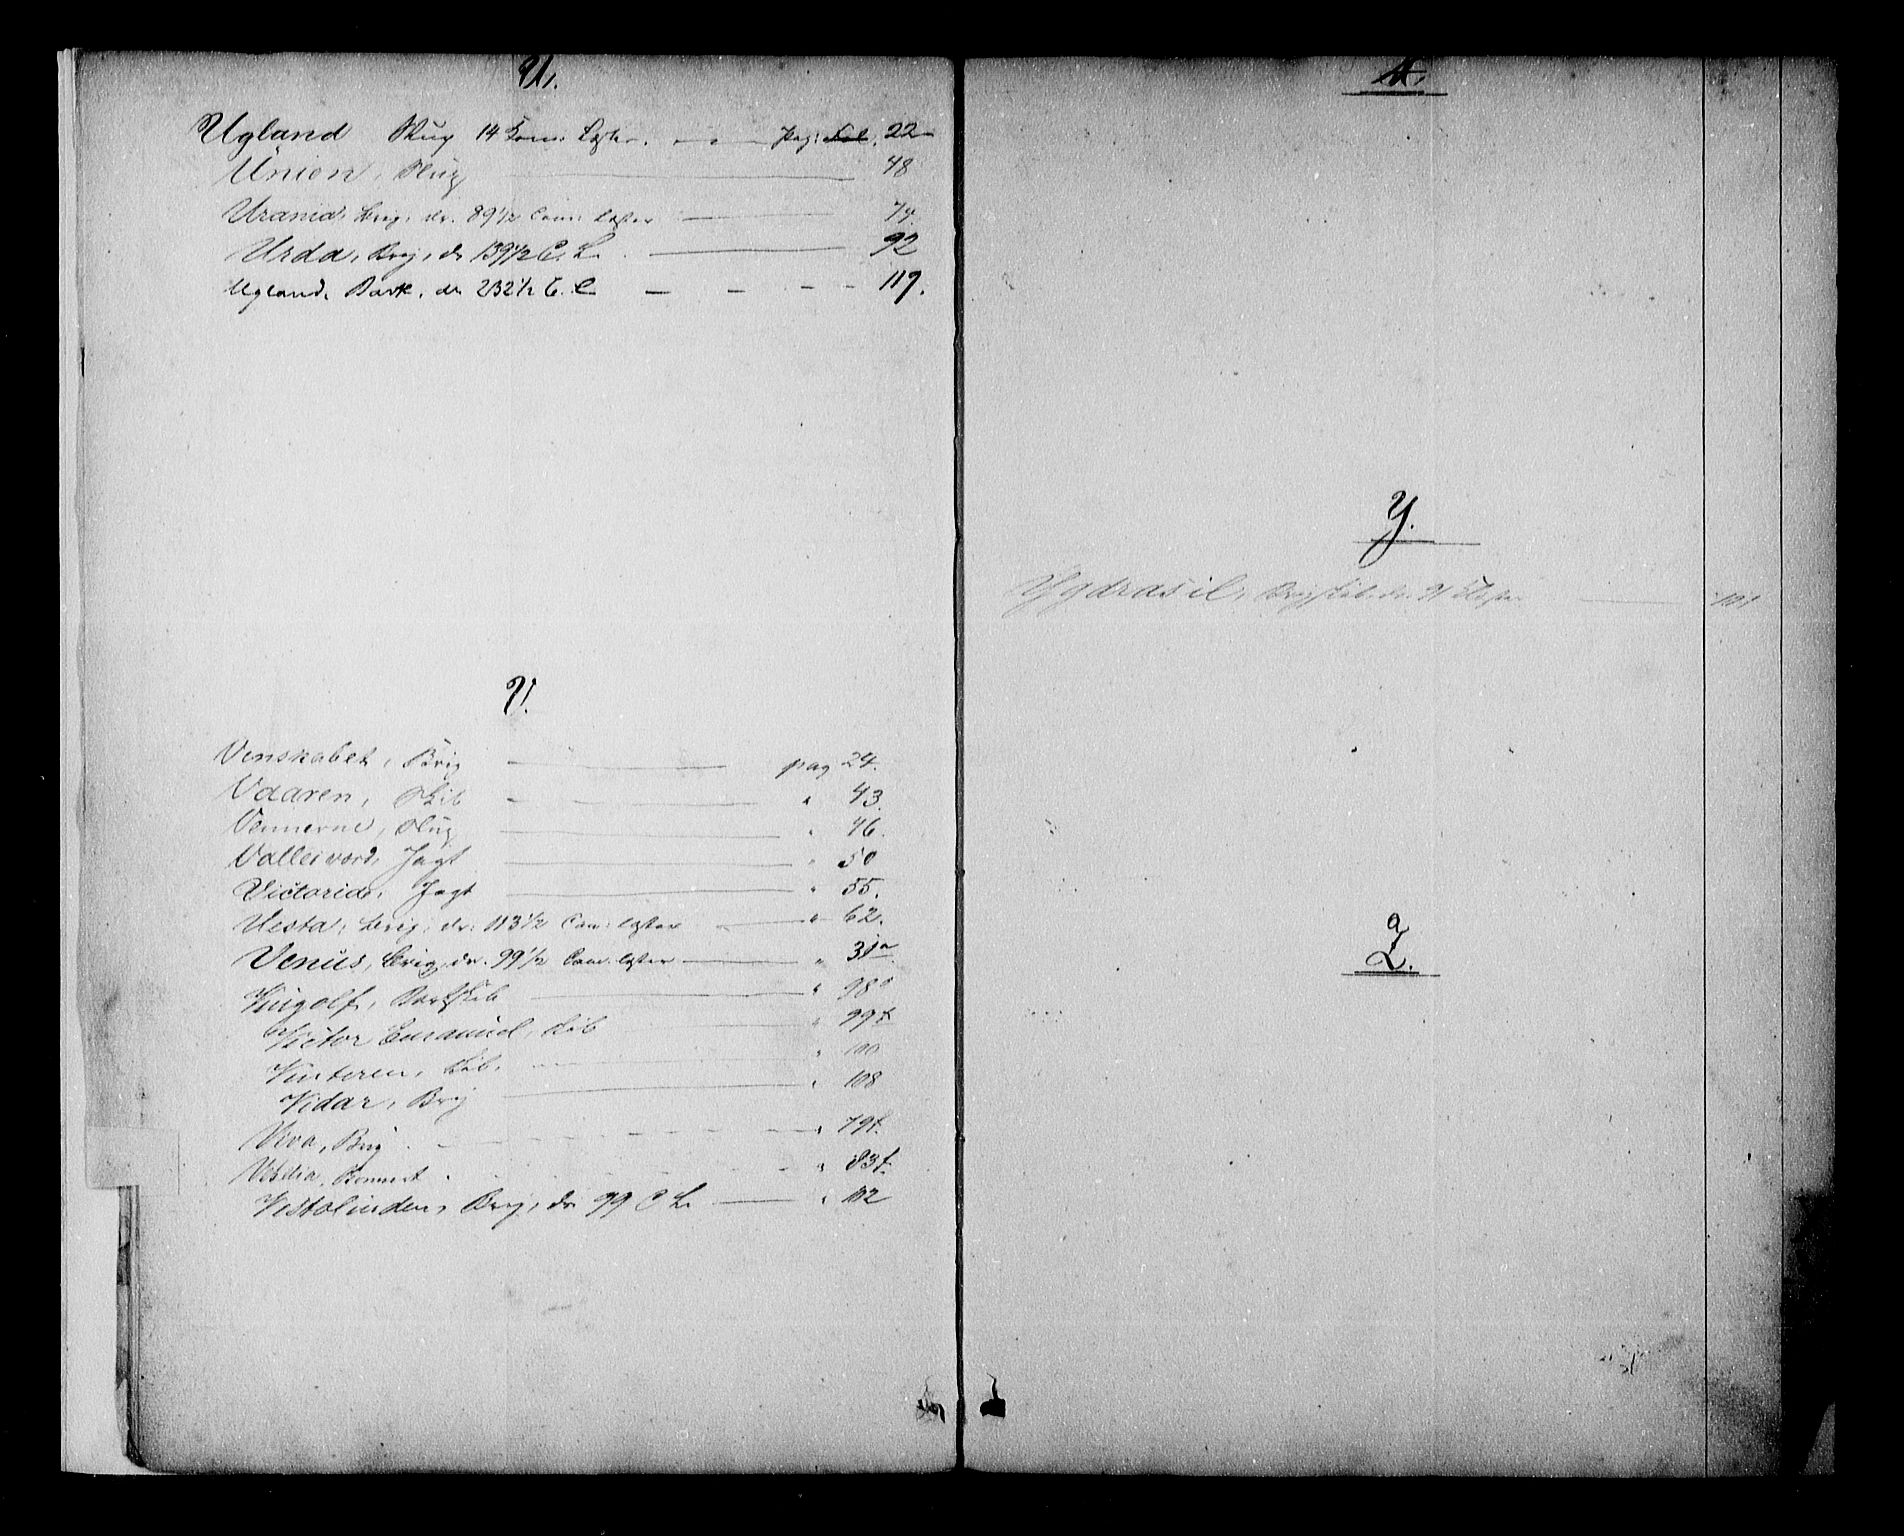 U.
Ugland Slug 14 Com. Læster. — pag: Fol. 22
Union, Slug — 48
Urania, brig, dr. 89 1/2 Com: læster — 74.
Urda, Brig, dr 139 1/2 C. L. — 92
Ugland, Bark, dr 232 1/2 C. L — 117.
V.
Venskabet, Brig — pag 24.
Vaaren, Skib — " 43.
Vennerne, Slug — " 46.
Jagt — " 50
Victoria, Jagt — " 55.
Vesta, brig, dr. 113 1/2 Com: læster — " 62.
Venus, brig, dr. 99 1/2 Com. læster — " 31a.
Vingolf, Barkskib — " 98
Victor Emanuel, Skib — " 99
Vinteren, Skib. — " 100
Vidar, Brig — " 108
Viva, Brig — " 79
— " 83
Vestalinden, Brig, dr 99 C L. — " 112
Y.
Ygdrasil, — 101
Z.